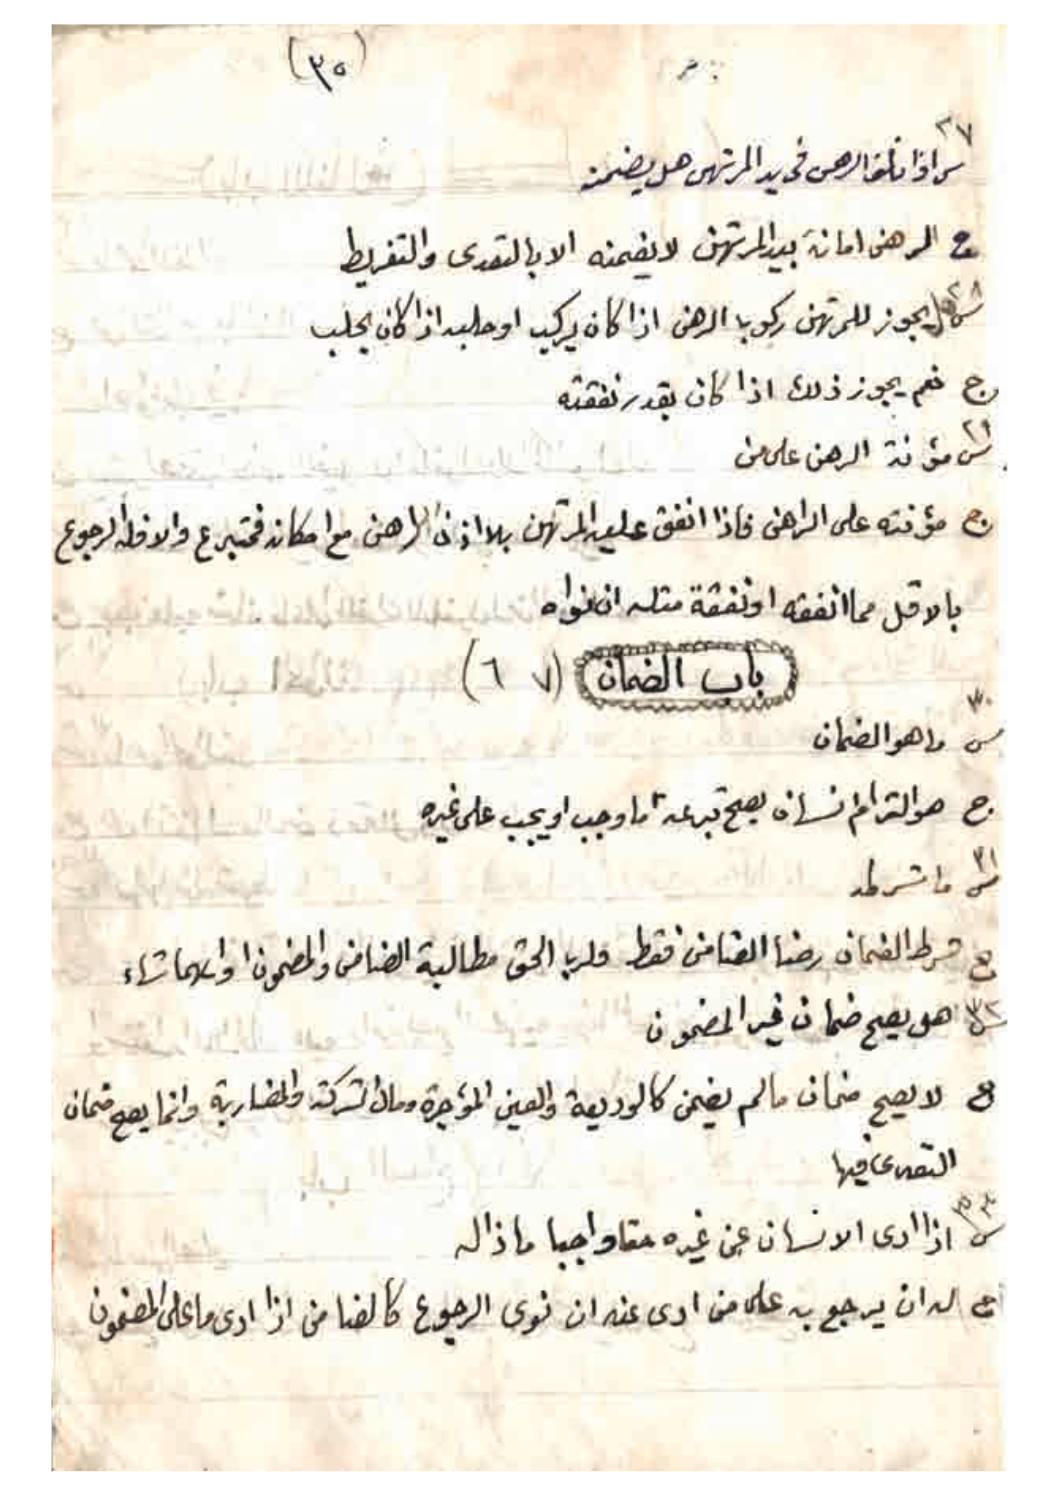 (٣٥)
٢٧
س اذا تلف الرهن في يد المرتهن هل يضمنه
ج الرهن امانة بيد المرتهن لا يضمنه الا بالتعدى والتفريط
٢٨
س هل يجوز للمرتهن ركوب الرهن اذا كان يركب او حلبه اذا كان يحلب
ج نعم يجوز ذلك اذا كان بقدر نفقته
س مؤنة الرهن على من
ج مؤنته على الراهن فاذا انفق عليه المرتهن بلا اذن الراهن مع امكانه فمتبرع والا فله الرجوع
بالاقل مما انفقه او نفقة مثله ان نواه
باب الضمان (٧ ٦)
٣٠
س ما هو الضمان
ج هو التزام انسان يصح تبرعه ما وجب او يجب على غيره
٣١
س ما شرطه
ج شرط الضمان رضا الضامن فقط ولرب الحق مطالبة الضامن والمضمون او ايهما شاء
٣٢
س هل يصح ضمان غير المضمون
ج لا يصح ضمان مالم يضمن كالوديعة والعين المؤجرة ومال الشركة والمضاربة وانما يصح ضمان
التعدى فيها
س اذا ادى الانسان عن غيره حقا واجبا ماذا له
ج له ان يرجع به على من ادى عنه ان نوى الرجوع كالضامن اذا ادى ما على المضمون